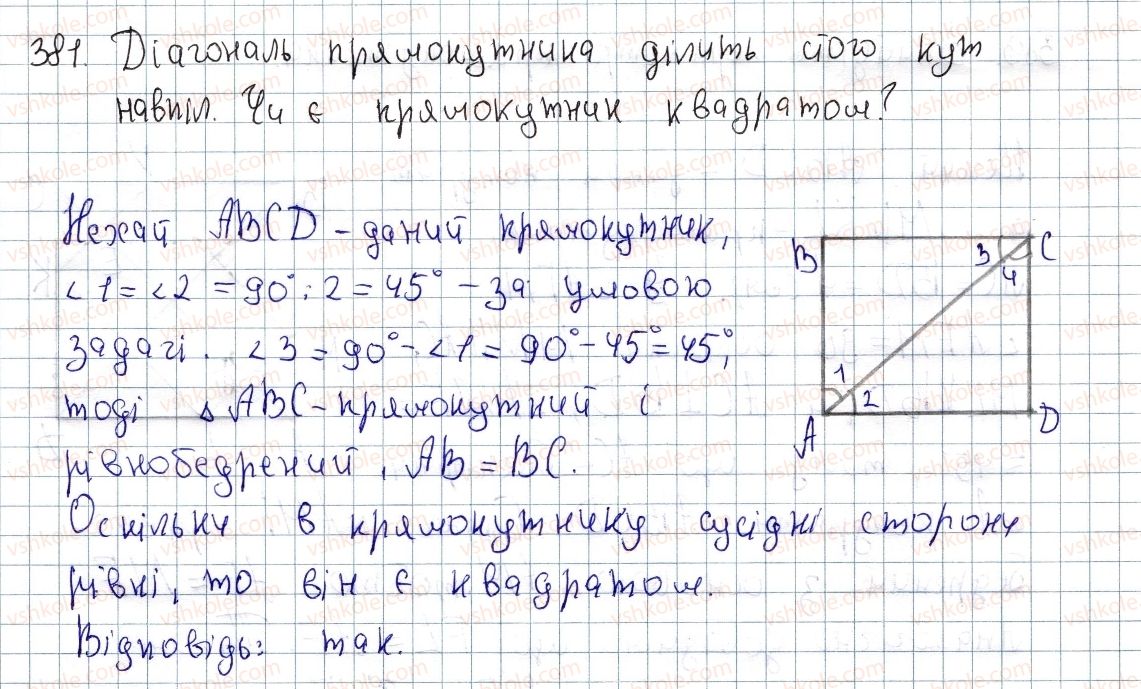 381. Діагональ прямокутника ділить його кут
навпіл. Чи є прямокутник квадратом?
Нехай ABCD - даний прямокутник,
∠1 = ∠2 = 90° : 2 = 45° - за умовою
задачі. ∠3 = 90° - ∠1 = 90° - 45° = 45°,
тоді △ ABC - прямокутний і
рівнобедрений, AB = BC.
Оскільки в прямокутнику сусідні сторони
рівні, то він є квадратом.
Відповідь: так.
B 3 C
4
1
2
A D